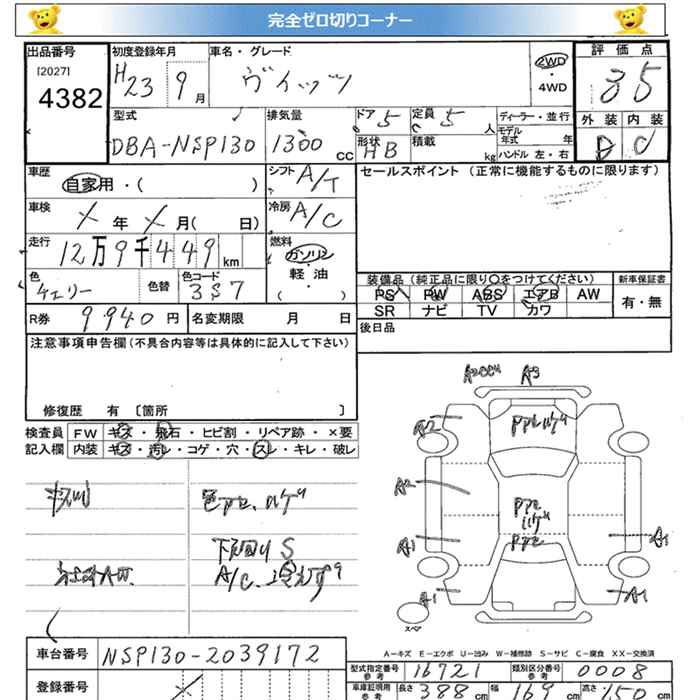 完全ゼロ切りコーナー
出品番号 初度登録年月 車名・グレード 2WD 評価点
[2027] H23 9月 ヴィッツ ・ 3.5
4382 4WD
型式 排気量 ドア 5 定員 5人 ディーラー・並行 外装 内装
DBA-NSP130 1300cc 形状 HB 積載 kg モデル年式 年 D C
ハンドル 左・右
車歴 シフト A/T セールスポイント (正常に機能するものに限ります)
自家用・( )
車検 X年X月( 日) 冷房 A/C
走行 12万9千449km 燃料 ガソリン
軽油
・( )
色 チェリー 色替 色コード 3S7 装備品 (純正品に限り○をつけてください) 新車保証書
PS PW ABS エアB AW 有・無
SR ナビ TV カワ
R券 9940円 名変期限 月 日 後日品
注意事項申告欄(不具合内容等は具体的に記入して下さい)
修復歴 有 〔箇所 〕
検査員 FW キズ・飛石・ヒビ割・リペア跡・×要
記入欄 内装 キズ・汚レ・コゲ・穴・スレ・キレ・破レ
A3
A2
A2
A1
A1
A1
A1
色アセ、ハゲ
下回りS
スペア
A-キズ E-エクボ U-凹み W-補修跡 S-サビ C-腐食 XX-交換済
車台番号 NSP130-2039172 型式指定番号 参考 16721 類別区分番号 参考 0008
登録番号 車庫証明用 参考 長さ 388cm 幅 169cm 高さ 150cm